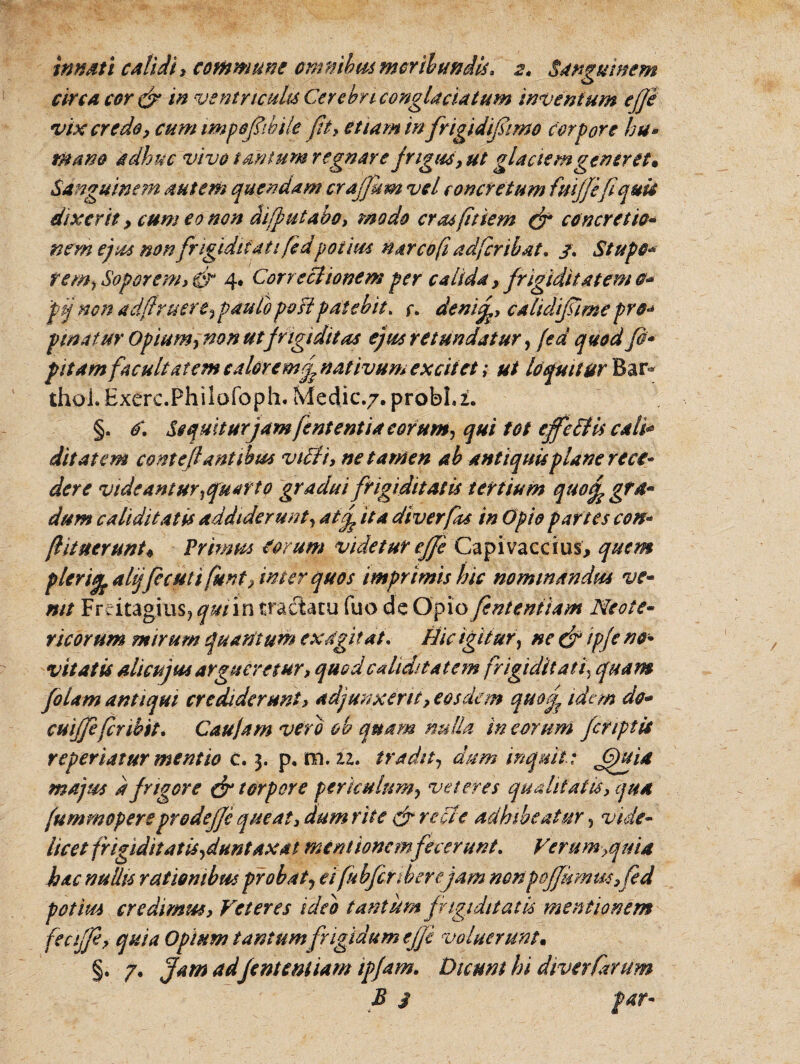 innati calidi, commune omnibus moribundis. 2. Sanguinem
circa cor & in ventriculis Cerebri conglaciatum inventum eſſe
vix credo, cum impoſſibile ſit, etiam in frigidiſſimo corpore hu-
mano adhuc vivo tantum regnare frigus, ut glaciem generet.
Sanguinem autem quendam craſſum vel concretum fuiſſe ſi quis
dixerit, cum eo non diſputabo, modo craſſitiem & concretio-
nem ejus non frigiditati ſed potius narcoſi adſcribat. 3. Stupo-
rem, Soporem, & 4. Correctionem per calida, frigiditatem o-
pij non adſtruere, paulò pòſt patebit. 5. deniq;, calidiſſime pro-
pinatur Opium, non ut frigiditas ejus retundatur, ſed quod ſo-
pitam facultatem caloremq; nativum excitet; ut loquitur Bar-
thol. Exerc. Philoſoph. Medic. 7. probl. 2.
§. 6. Sequitur jam ſententia eorum, qui tot effectis cali-
ditatem conteſtantibus victi, ne tamen ab antiquis plane rece-
dere videantur, quarto gradui frigiditatis tertium quoq; gra-
dum caliditatis addiderunt, atq; ita diverſas in Opio partes con-
ſtituerunt. Primus eorum videtur eſſe Capivaccius, quem
pleriq; alij ſecuti ſunt, inter quos imprimis hic nominandus ve-
nit Freitagius, qui in tractatu ſuo de Opio ſententiam Neote-
ricorum mirum quantum exagitat. Hic igitur, ne & ipſe no-
vitatis alicujus argueretur, quod caliditatem frigiditati, quam
ſolam antiqui crediderunt, adjunxerit, eosdem quoq; idem do-
cuiſſe ſcribit. Cauſam verò ob quam nulla in eorum ſcriptis
reperiatur mentio c. 3. p. m. 22. tradit, dum inquit: Quia
majus à frigore & torpore periculum, veteres qualitatis, qua
ſummopere prodeſſe queat, dum rite & recte adhibeatur, vide-
licet frigiditatis, duntaxat mentionem fecerunt. Verum, quia
hac nullis rationibus probat, ei ſubſcribere jam non poſſumus, ſed
potius credimus, Veteres ideò tantùm frigiditatis mentionem
feciſſe, quia Opium tantum frigidum eſſe voluerunt.
§. 7. Jam ad ſententiam ipſam. Dicunt hi diverſarum
B 3 par-